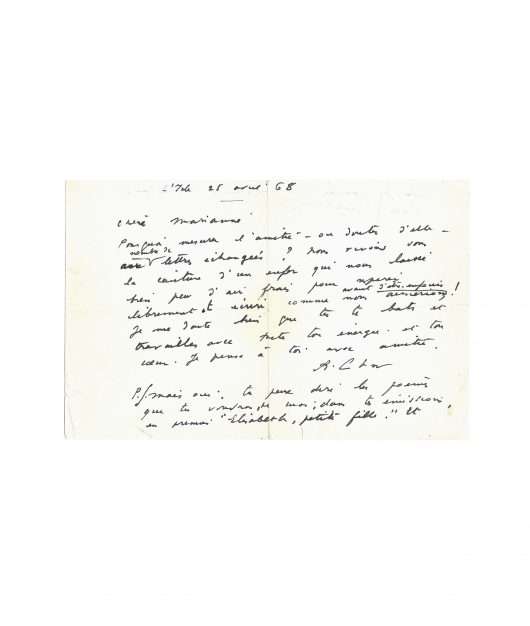 L'Isle 25 avril 68
chère Marianne
Pourquoi mesurer l'amitié - ou douter d'elle -
nombre de
aux lettres échangées ? Nous vivons sous
la ceinture d'un enfer qui nous laisse
bien peu d'air frais pour respirer
librement et écrire comme nous aimerions !
avant d'être enfouis
Je me doute bien que tu te bats et
travailles avec toute ton énergie et ton
cœur. Je pense à toi avec amitié.
R. Char
P.S. mais oui, tu peux dire les poèmes
que tu voudras de moi, dans tes émissions,
en premier "Elisabeth, petite fille." Et